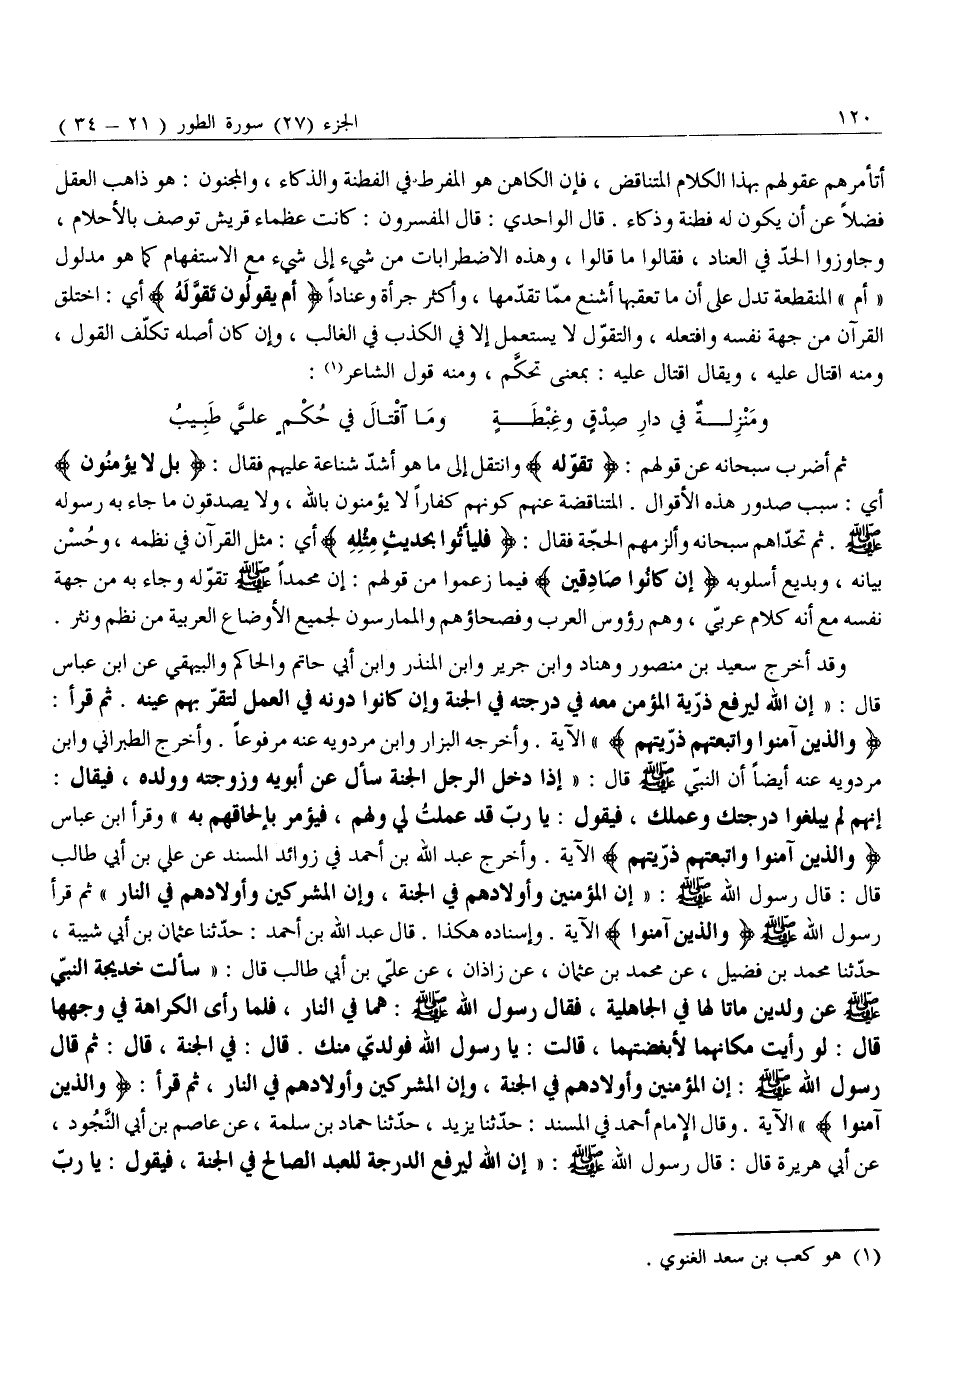 ١٢٠
الجزء (٢٧) سورة الطور ( ٢١ – ٣٤ )
أتأمرهم عقولهم بهذا الكلام المتناقض ، فإن الكاهن هو المفرط في الفطنة والذكاء ، والمجنون : هو ذاهب العقل
فضلاً عن أن يكون له فطنة وذكاء . قال الواحدي : قال المفسرون : كانت عظماء قريش توصف بالأحلام ،
وجاوزوا الحدّ في العناد ، فقالوا ما قالوا ، وهذه الاضطرابات من شيء إلى شيء مع الاستفهام كما هو مدلول
« أم » المنقطعة تدل على أن ما تعقبها أشنع ممّا تقدّمها ، وأكثر جرأة وعناداً ﴿ أم يقولُون تَقوَّلَهُ ﴾ أي : اختلق
القرآن من جهة نفسه وافتعله ، والتقوّل لا يستعمل إلا في الكذب في الغالب ، وإن كان أصله تكلّف القول ،
ومنه اقتال عليه ، ويقال اقتال عليه : بمعنى تحكَّم ، ومنه قول الشاعر(١) :
ومَنْزِلـــةٌ في دارِ صِدْقٍ وغِبْطَـــةٍ ومَـا اَقْتالَ في حُكْمٍ عليَّ طَبِيبُ
ثم أضرب سبحانه عن قولهم : ﴿ تقوّله ﴾ وانتقل إلى ما هو أشدّ شناعة عليهم فقال : ﴿ بل لا يؤمنُون ﴾
أي : سبب صدور هذه الأقوال . المتناقضة عنهم كونهم كفاراً لا يؤمنون بالله ، ولا يصدقون ما جاء به رسوله
ﷺ . ثم تحدّاهم سبحانه وألزمهم الحجّة فقال : ﴿ فليأتُوا بحديثٍ مِثْلِهِ ﴾ أي : مثل القرآن في نظمه ، وحُسْن
بيانه ، وبديع أسلوبه ﴿ إن كانُوا صَادِقين ﴾ فيما زعموا من قولهم : إن محمداً ﷺ تقوّله وجاء به من جهة
نفسه مع أنه كلام عربّي ، وهم رؤوس العرب وفصحاؤهم والممارسون لجميع الأوضاع العربية من نظم ونثر .
وقد أخرج سعيد بن منصور وهناد وابن جرير وابن المنذر وابن أبي حاتم والحاكم والبيهقي عن ابن عباس
قال : « إن الله ليرفع ذرّية المؤمن معه في درجته في الجنة وإن كانوا دونه في العمل لتقرّ بهم عينه . ثم قرأ :
﴿ والذين آمنوا واتبعتهم ذرّيتهم ﴾ » الآية . وأخرجه البزار وابن مردويه عنه مرفوعاً . وأخرج الطبراني وابن
مردويه عنه أيضاً أن النبّي ﷺ قال : « إذا دخل الرجل الجنة سأل عن أبويه وزوجته وولده ، فيقال :
إنهم لم يبلغوا درجتك وعملك ، فيقول : يا ربّ قد عملتُ لي ولهم ، فيؤمر بإلحاقهم به » وقرأ ابن عباس
﴿ والذين آمنوا واتبعتهم ذرّيتهم ﴾ الآية . وأخرج عبد الله بن أحمد في زوائد المسند عن علي بن أبي طالب
قال : قال رسول الله ﷺ : « إن المؤمنين وأولادهم في الجنة ، وإن المشركين وأولادهم في النار » ثم قرأ
رسول الله ﷺ ﴿ والذين آمنوا ﴾ الآية . وإسناده هكذا . قال عبد الله بن أحمد : حدّثنا عثمان بن أبي شيبة ،
حدّثنا محمد بن فضيل ، عن محمد بن عثمان ، عن زاذان ، عن عليّ بن أبي طالب قال : « سألت خديجة النبّي
ﷺ عن ولدين ماتا لها في الجاهلية ، فقال رسول الله ﷺ : هما في النار ، فلما رأى الكراهة في وجهها
قال : لو رأيت مكانهما لأبغضتهما ، قالت : يا رسول الله فولديّ منك . قال : في الجنة ، قال : ثم قال
رسول الله ﷺ : إن المؤمنين وأولادهم في الجنة ، وإن المشركين وأولادهم في النار ، ثم قرأ : ﴿ والذين
آمنوا ﴾ » الآية . وقال الإمام أحمد في المسند : حدّثنا يزيد ، حدّثنا حماد بن سلمة ، عن عاصم بن أبي النَّجُود ،
عن أبي هريرة قال : قال رسول الله ﷺ : « إن الله ليرفع الدرجة للعبد الصالح في الجنة ، فيقول : يا ربّ
(١) هو كعب بن سعد الغنوي .